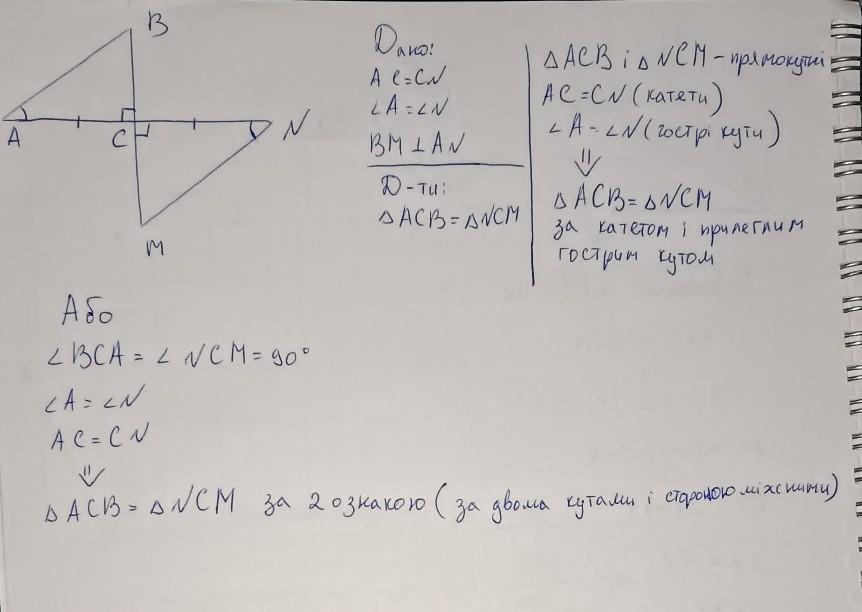 B
A
C
N
M
Дано:
AC=CN
∠A=∠N
BM⊥AN
Д-ти:
△ACB=△NCM
△ACB і △NCM-прямокутні
AC=CN (катети)
∠A=∠N (гострі кути)
⇓
△ACB=△NCM
за катетом і прилеглим
гострим кутом
Або
∠BCA=∠NCM=90°
∠A=∠N
AC=CN
⇓
△ACB=△NCM за 2 ознакою (за двома кутами і стороною між ними)